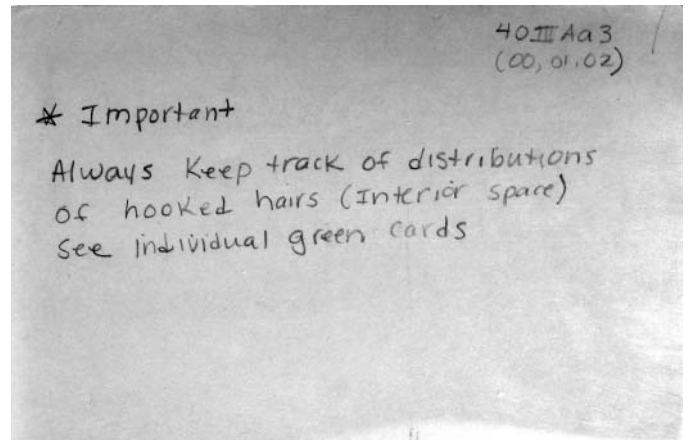 40 III Aa 3
(00, 01, 02)
* Important
Always Keep track of distributions
of hooked hairs (Interior space)
See individual green cards